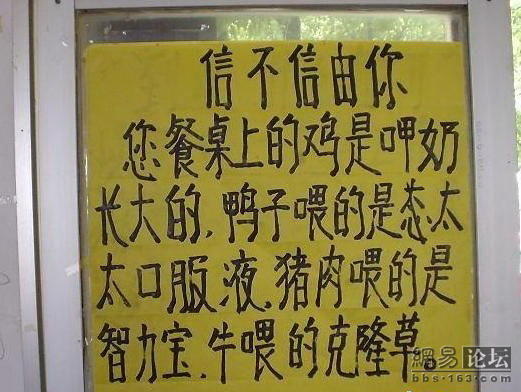 信不信由你
您餐桌上的鸡是呷奶
长大的,鸭子喂的是态太
太口服液,猪肉喂的是
智力宝,牛喂的克隆草。
網易论坛
bbs.163.com